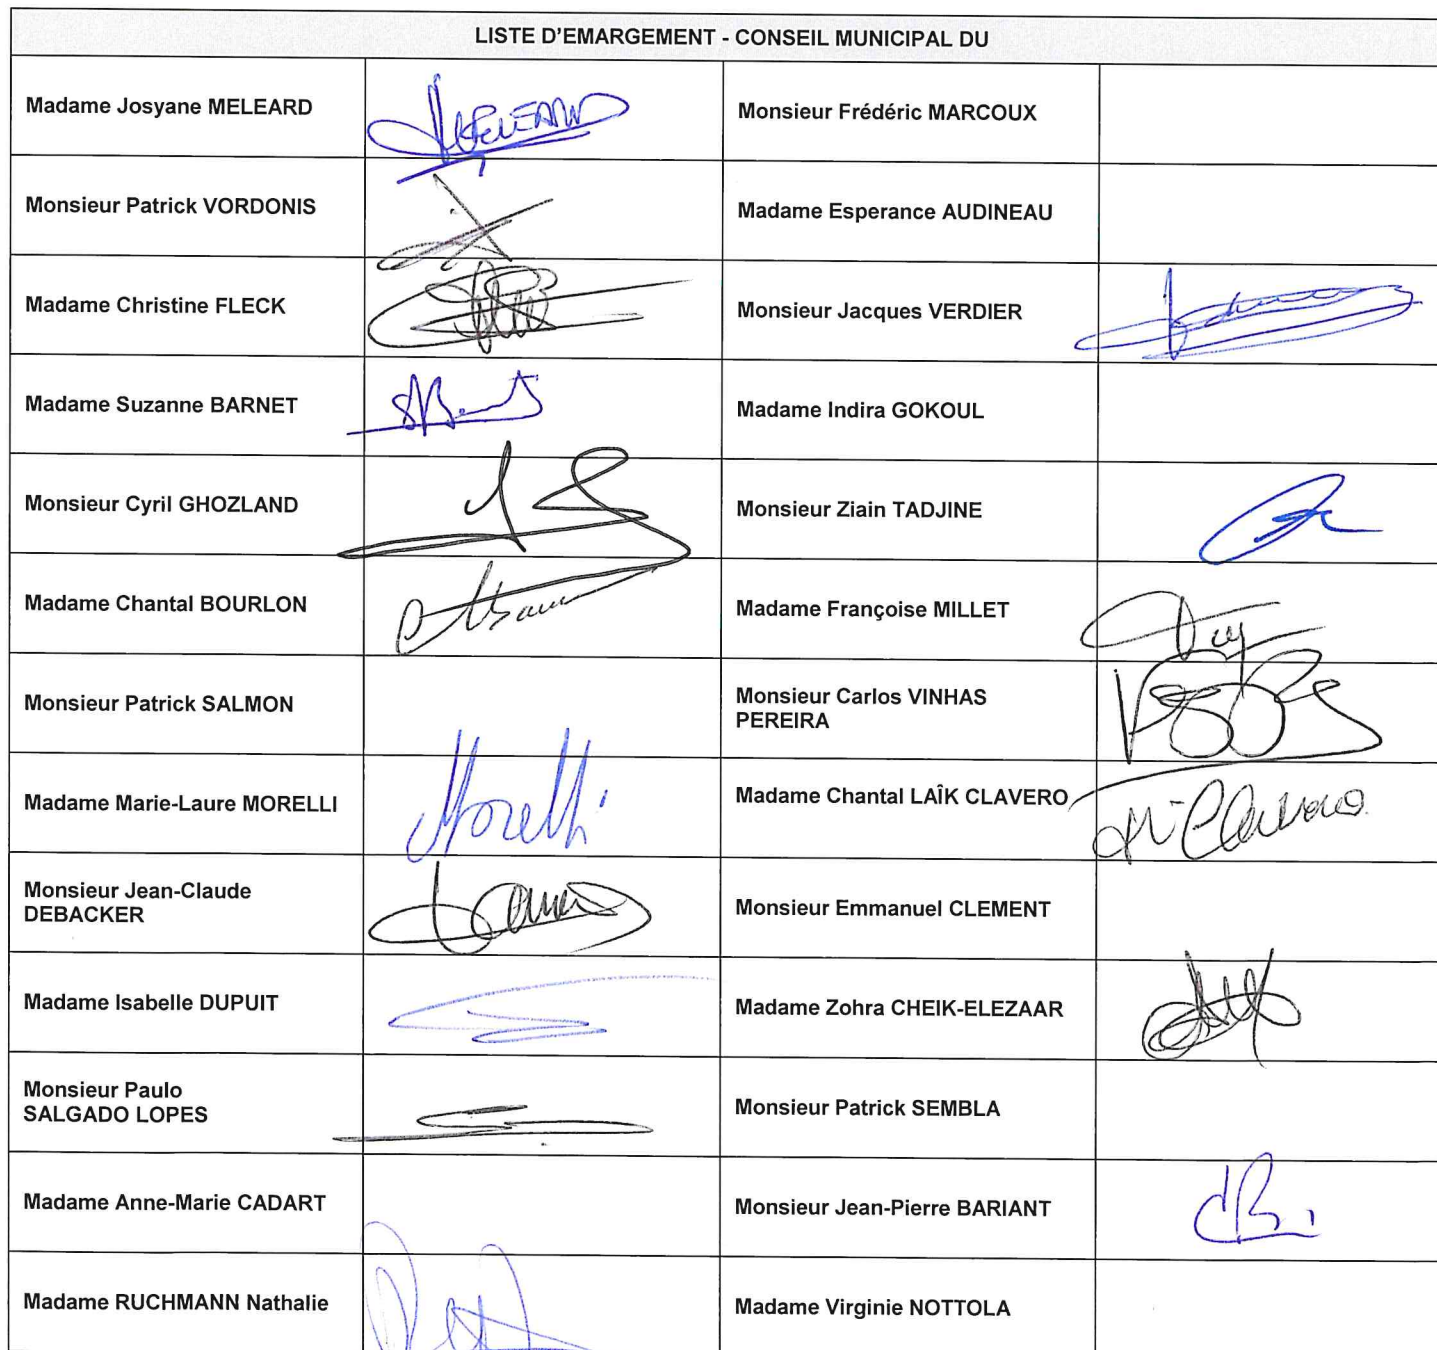 LISTE D'EMARGEMENT - CONSEIL MUNICIPAL DU
Madame Josyane MELEARD
Monsieur Frédéric MARCOUX
Monsieur Patrick VORDONIS
Madame Esperance AUDINEAU
Madame Christine FLECK
Monsieur Jacques VERDIER
Madame Suzanne BARNET
Madame Indira GOKOUL
Monsieur Cyril GHOZLAND
Monsieur Ziain TADJINE
Madame Chantal BOURLON
Madame Françoise MILLET
Monsieur Patrick SALMON
Monsieur Carlos VINHAS
PEREIRA
Madame Marie-Laure MORELLI
Morelli
Madame Chantal LAÎK CLAVERO
Monsieur Jean-Claude
DEBACKER
Monsieur Emmanuel CLEMENT
Madame Isabelle DUPUIT
Madame Zohra CHEIK-ELEZAAR
Monsieur Paulo
SALGADO LOPES
Monsieur Patrick SEMBLA
Madame Anne-Marie CADART
Monsieur Jean-Pierre BARIANT
Madame RUCHMANN Nathalie
Madame Virginie NOTTOLA